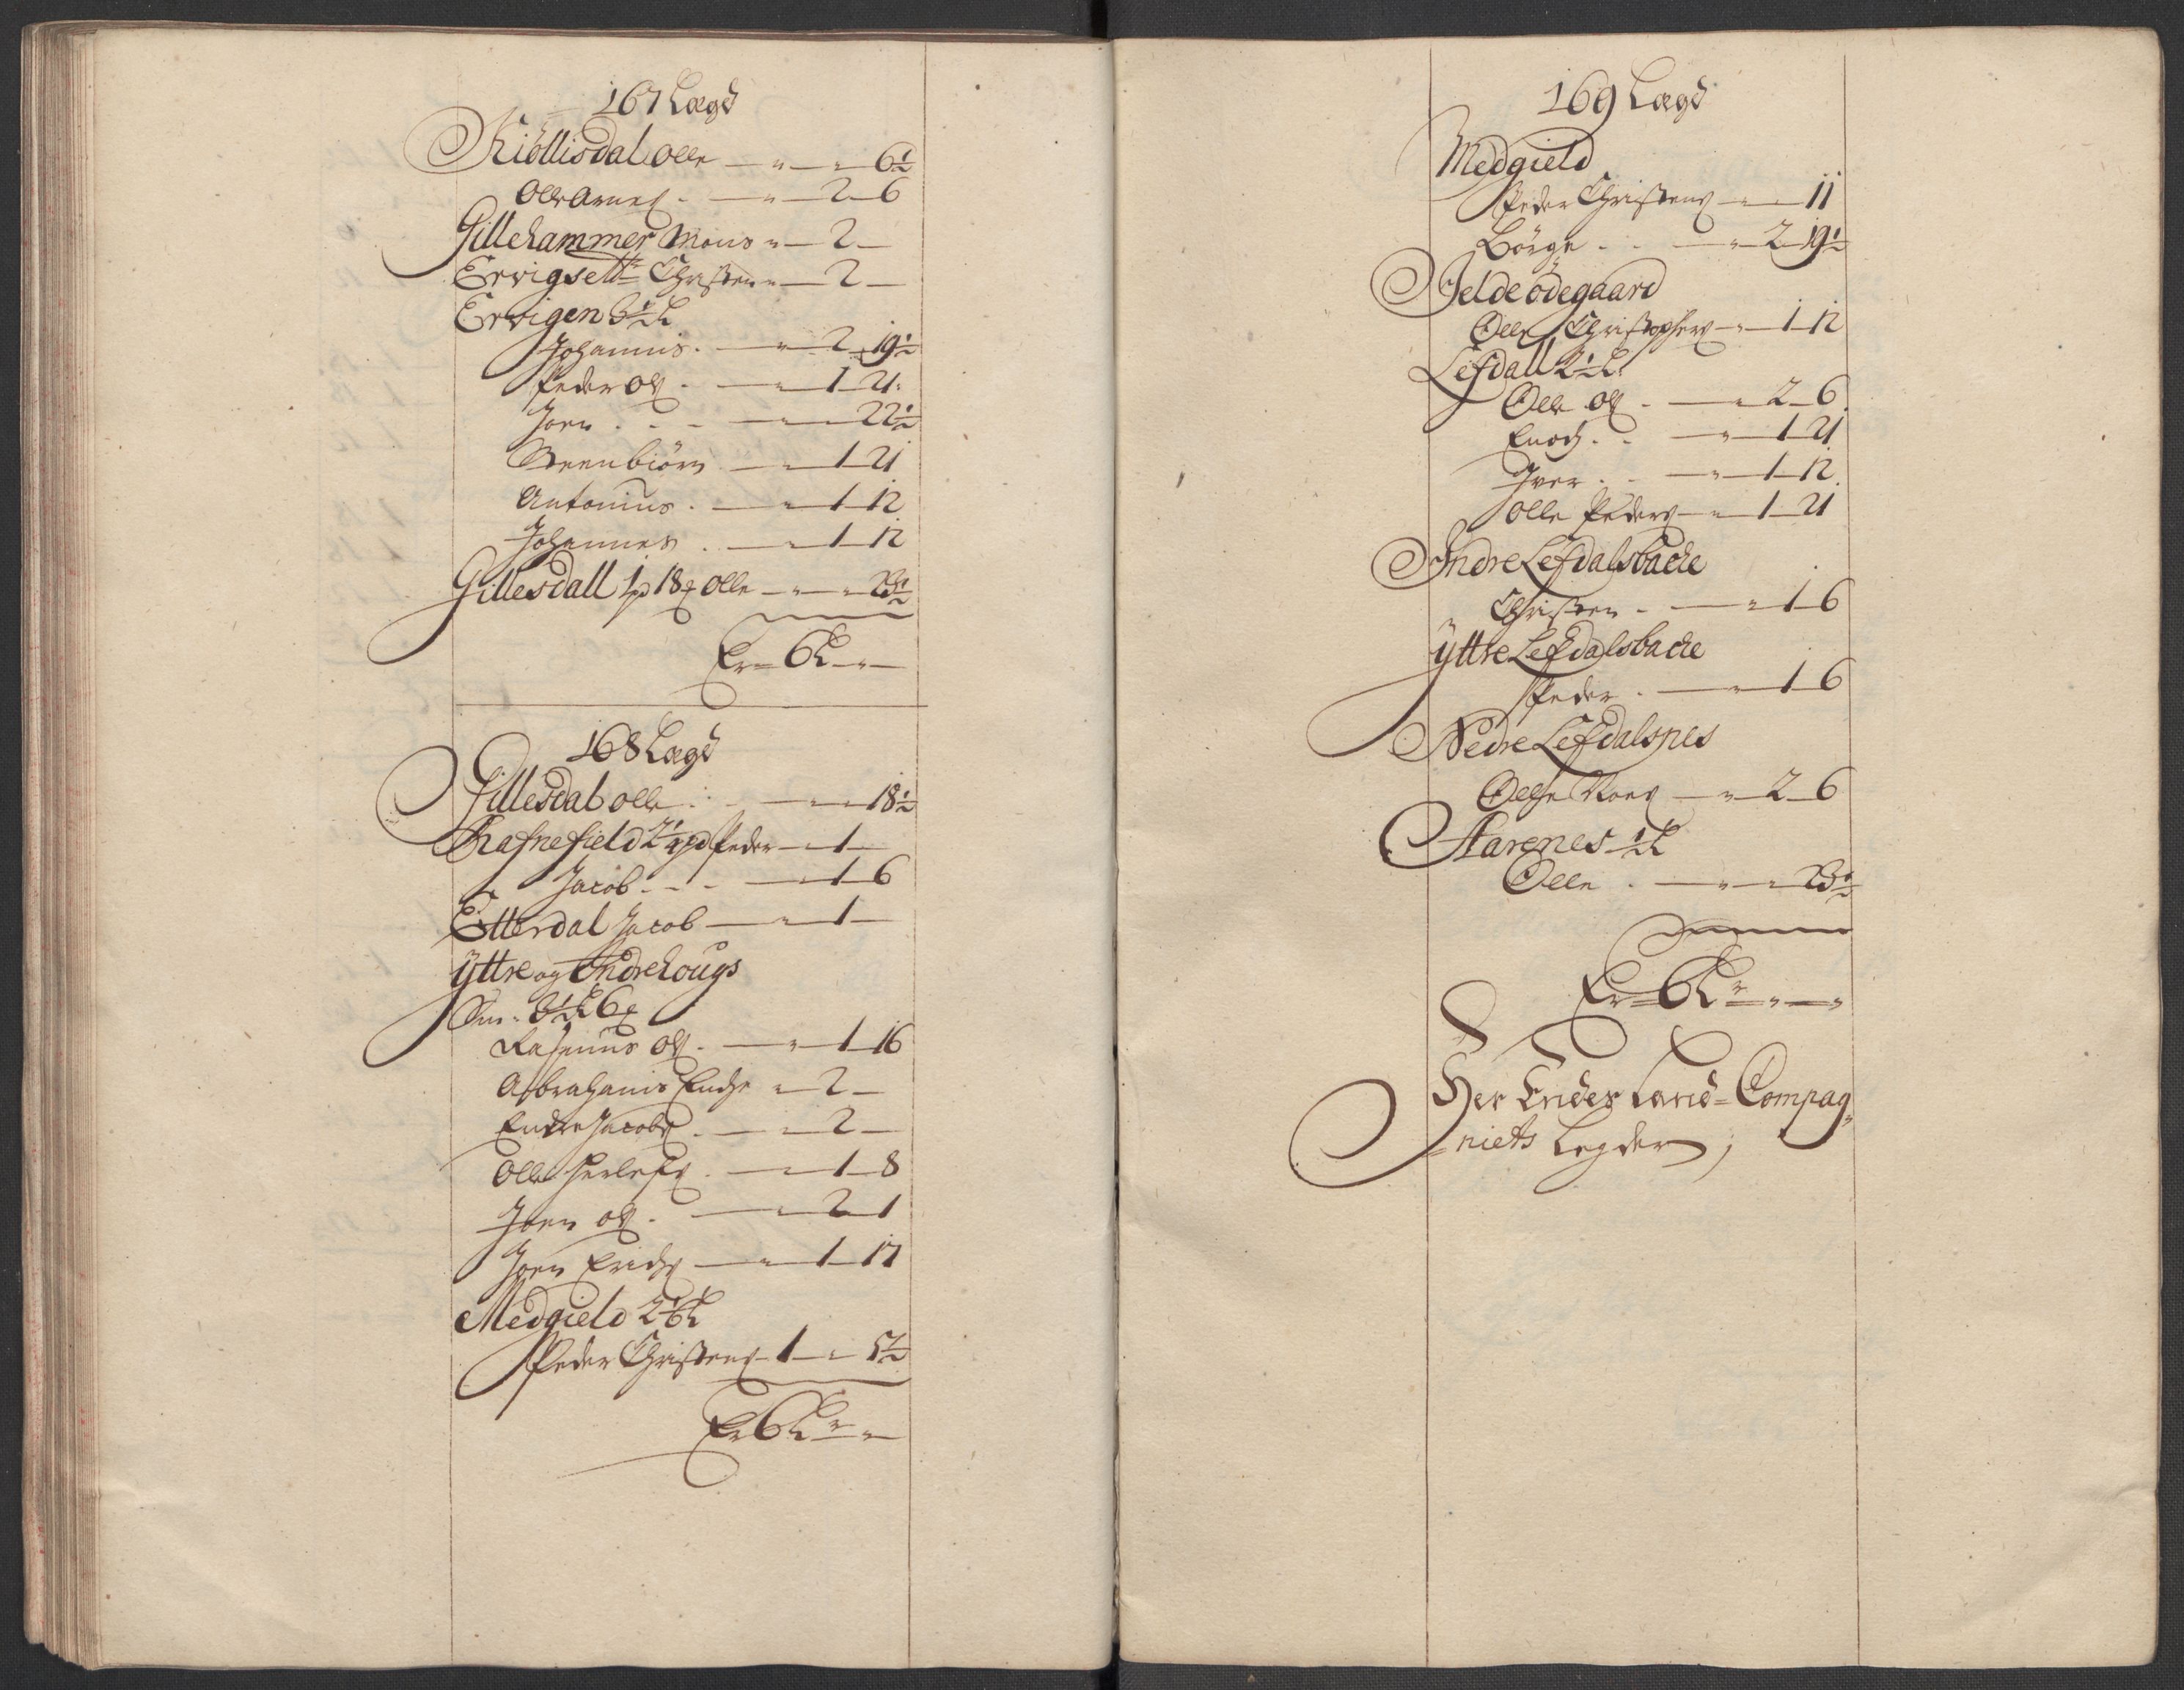 167 Lægd
Kiöllisdal Olle — „ — „ 6½
Olle Arnes. — „ — 2 — 6
Gillehammer Mons „ — 2 —
Ervigsett Christen „ — 2 —
Ervigen 3½ L
Johannis. — „ — 2 — 19½
Peder Ols. — „ — 1 — 21.
Joen . . — „ — „ — 22½
Steenbiörn — „ — 1 — 21
Antonius. — „ — 1 — 12
Johannes. — „ — 1 — 12
Gillesdall 1 pd 18 Olle — „ — „ — 23½
Er = 6 L — „ —
168 Lægd
Gillesdal Olle . — „ — „ 18½
Rafnefield 2¼ pd Peder — „ 1 —
Jacob . . . — „ 1 — 6
Etterdal Jacob — „ — 1 —
Yttre og Indre Lougs
3½ L 6
Rasmus Ols. — „ — 1 — 16
Abraham Ends „ — 2 —
Endre Jacobs. — „ — 2 —
Olle Herlefs. — „ — 1 — 8
Joen Ols. — „ — 2 — 1
Joen Erichs — „ — 1 — 17
Medgield 2 L
Peder Christens — 1 — „ 5½
Er 6 L „ — „
169 Lægd
Medgield
Peder Christens — „ — „ 11
Börge . . — „ — 2 — 19½
Jeldeödegaard
Olle Christophers — „ — 1 — 12
Lefdall 2½ L
Olle Ols . — „ 2 — 6
Enoch . . — „ — 1 — 21
Iver . . — „ — 1 — 12
Olle Peders — „ — 1 — 21
Indre Lefdalsbache
Christen . — „ 1 — 6
Yttre Lefdalsbache
Peder . — „ — 1 — 6
Nedre Lefdalsnes
Olle Roes — „ — 2 — 6
Aarenes ½ L
Olle . — „ — „ 23½
Er = 6 L „ — „
Her Endes Land = Compag„
= niets Legder;